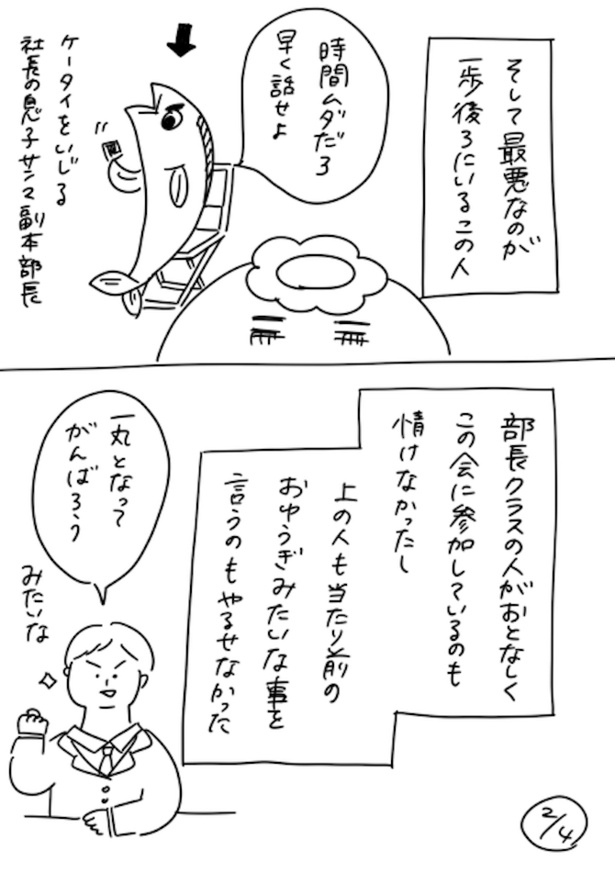 そして最悪なのが
一歩後ろにいるこの人
時間ムダだろ
早く話せよ
ケータイをいじる
社長の息子サンマ副本部長
部長クラスの人がおとなしく
この会に参加しているのも
情けなかったし
上の人も当たり前の
おゆうぎみたいな事を
言うのもやるせなかった
一丸となって
がんばろう
みたいな
2/4